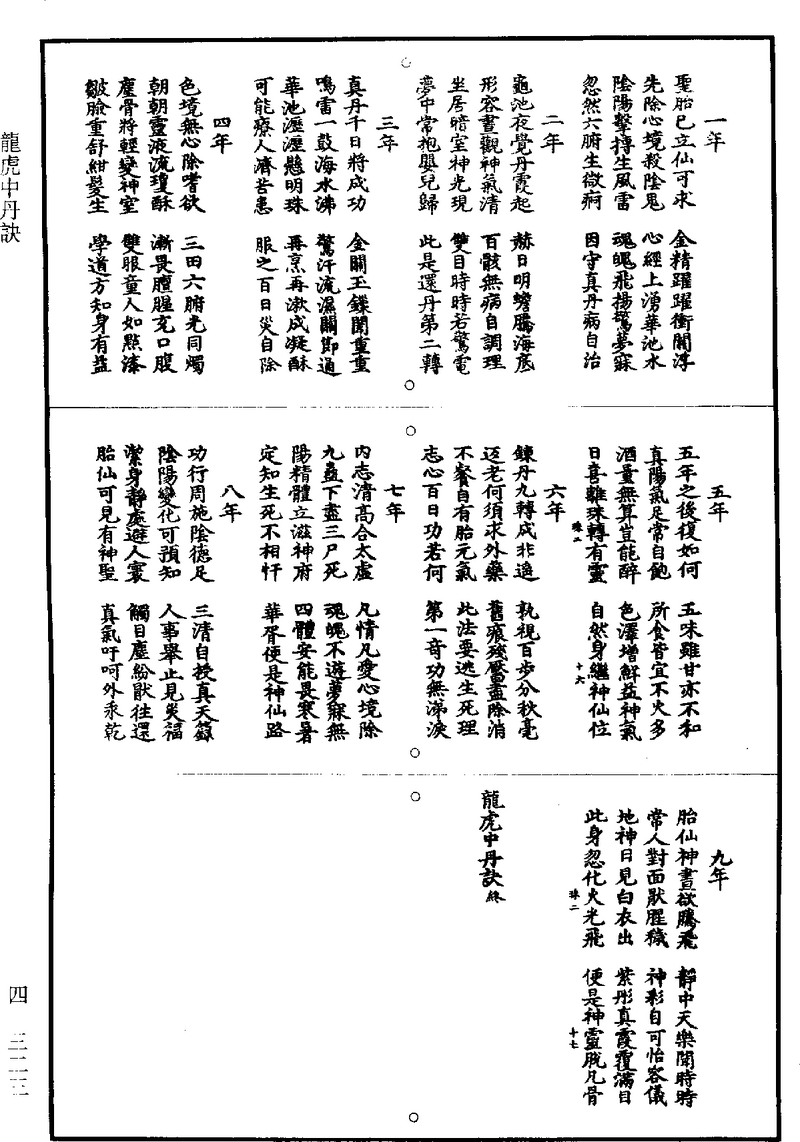 龍虎中丹訣
一年
聖胎已立仙可求　金精躍躍衝關浮
先除心境殺陰鬼　心經上湧華池水
陰陽擊搏生風雷　魂魄飛揚驚夢寐
忽然六腑生微痾　因守真丹病自治
二年
龜池夜覺丹霞起　赫日明蟾騰海底
形容晝觀神氣清　百骸無病自調理
坐居暗室神光現　雙目時時若驚電
夢中常抱嬰兒歸　此是還丹第二轉
三年
真丹千日將成功　金關玉鏁閉重重
鳴雷一鼓海水沸　驚汗流濕關節通
華池瀝瀝懸明珠　再烹再漱成凝酥
可能療人濟苦患　服之百日災自除
四年
色境無心除嗜欲　三田六腑光同燭
朝朝靈液流瓊酥　漸畏膻腥充口腹
塵骨將輕變神室　雙眼童人如點漆
皺臉重舒紺髮生　學道方知身有益
五年
五年之後復如何　五味雖甘亦不和
真陽氣足常自飽　所食皆宜不火多
酒量無算豈能醉　色澤增鮮益神氣
日喜雞珠轉有靈　自然身繼神仙位
珠二　十六
六年
鍊丹九轉成非遙　孰視百步分秋毫
返老何須求外藥　舊痕殘靨盡除消
不餐自有胎元氣　此法要逃生死理
志心百日功若何　第一奇功無涕淚
七年
內志清高合太虛　凡情凡愛心境除
九蟲下盡三尸死　魂魄不遊夢寐無
陽精體立滋神府　四體安能畏寒暑
定知生死不相忏　華胥便是神仙路
八年
功行周施陰德足　三清自授真天籙
陰陽變化可預知　人事舉止見災福
潔身靜處避人寰　觸目塵紛猒往還
胎仙可見有神聖　真氣吁呵外汞乾
九年
胎仙神晝欲騰飛　靜中天樂聞時時
常人對面猒腥穢　神彩自可怡容儀
地神日見白衣出　紫彤真霞覆滿目
此身忽化火光飛　便是神靈脫凡骨
珠二　十七
龍虎中丹訣終
四　三二三